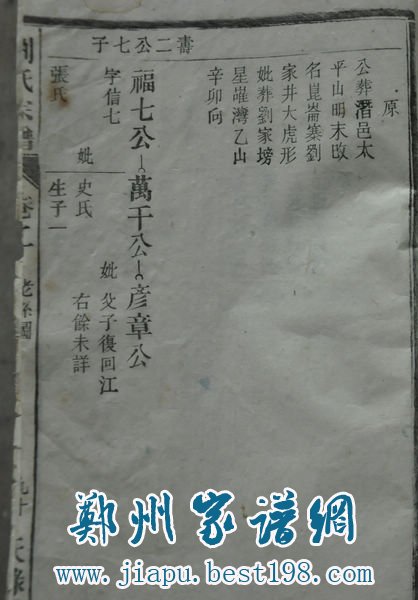 壽二公七子
原
公葬潛邑太
平山明末改
名崑崙寨劉
家井大虎形
妣葬劉家塝
星嶷灣乙山
辛卯向
福七公
萬干公
彥章公
字信七
妣
張氏
妣
史氏
生子一
妣
父子復回江
右餘未詳
劉氏宗譜
卷二
老系圖
鄭州家谱網
www.jiapu.best198.com